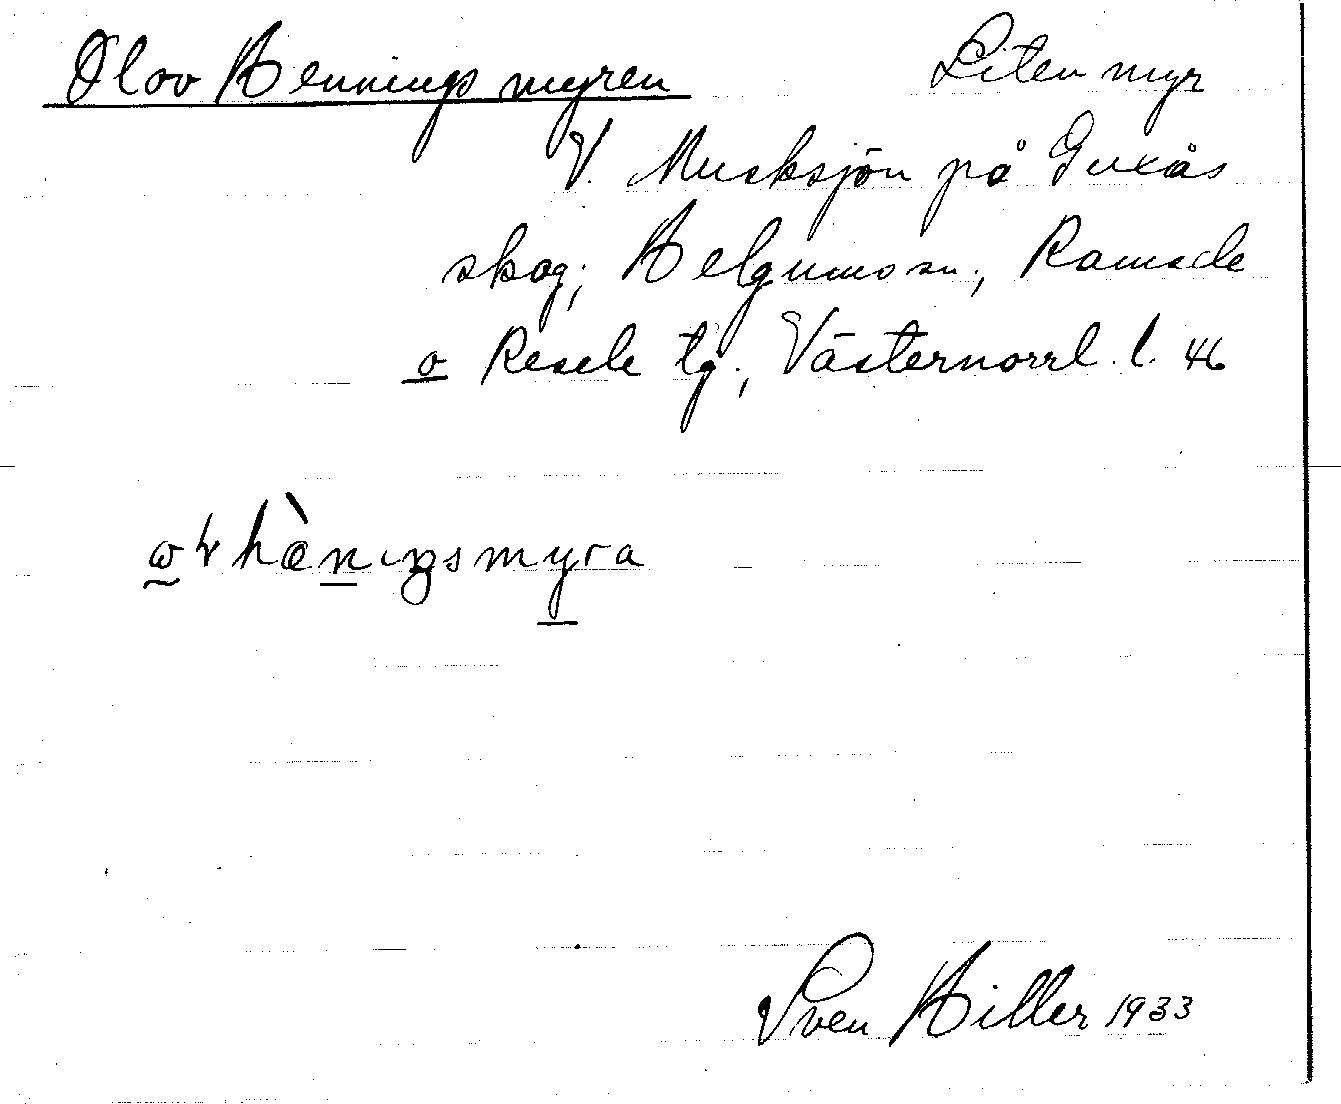 Olov Hennings myren Liten myr
V. Mucksjön på Guxås
skog; Helgums sn., Ramsele
o Resele tg., Västernorrl. l. 46
Sven Hiller 1933